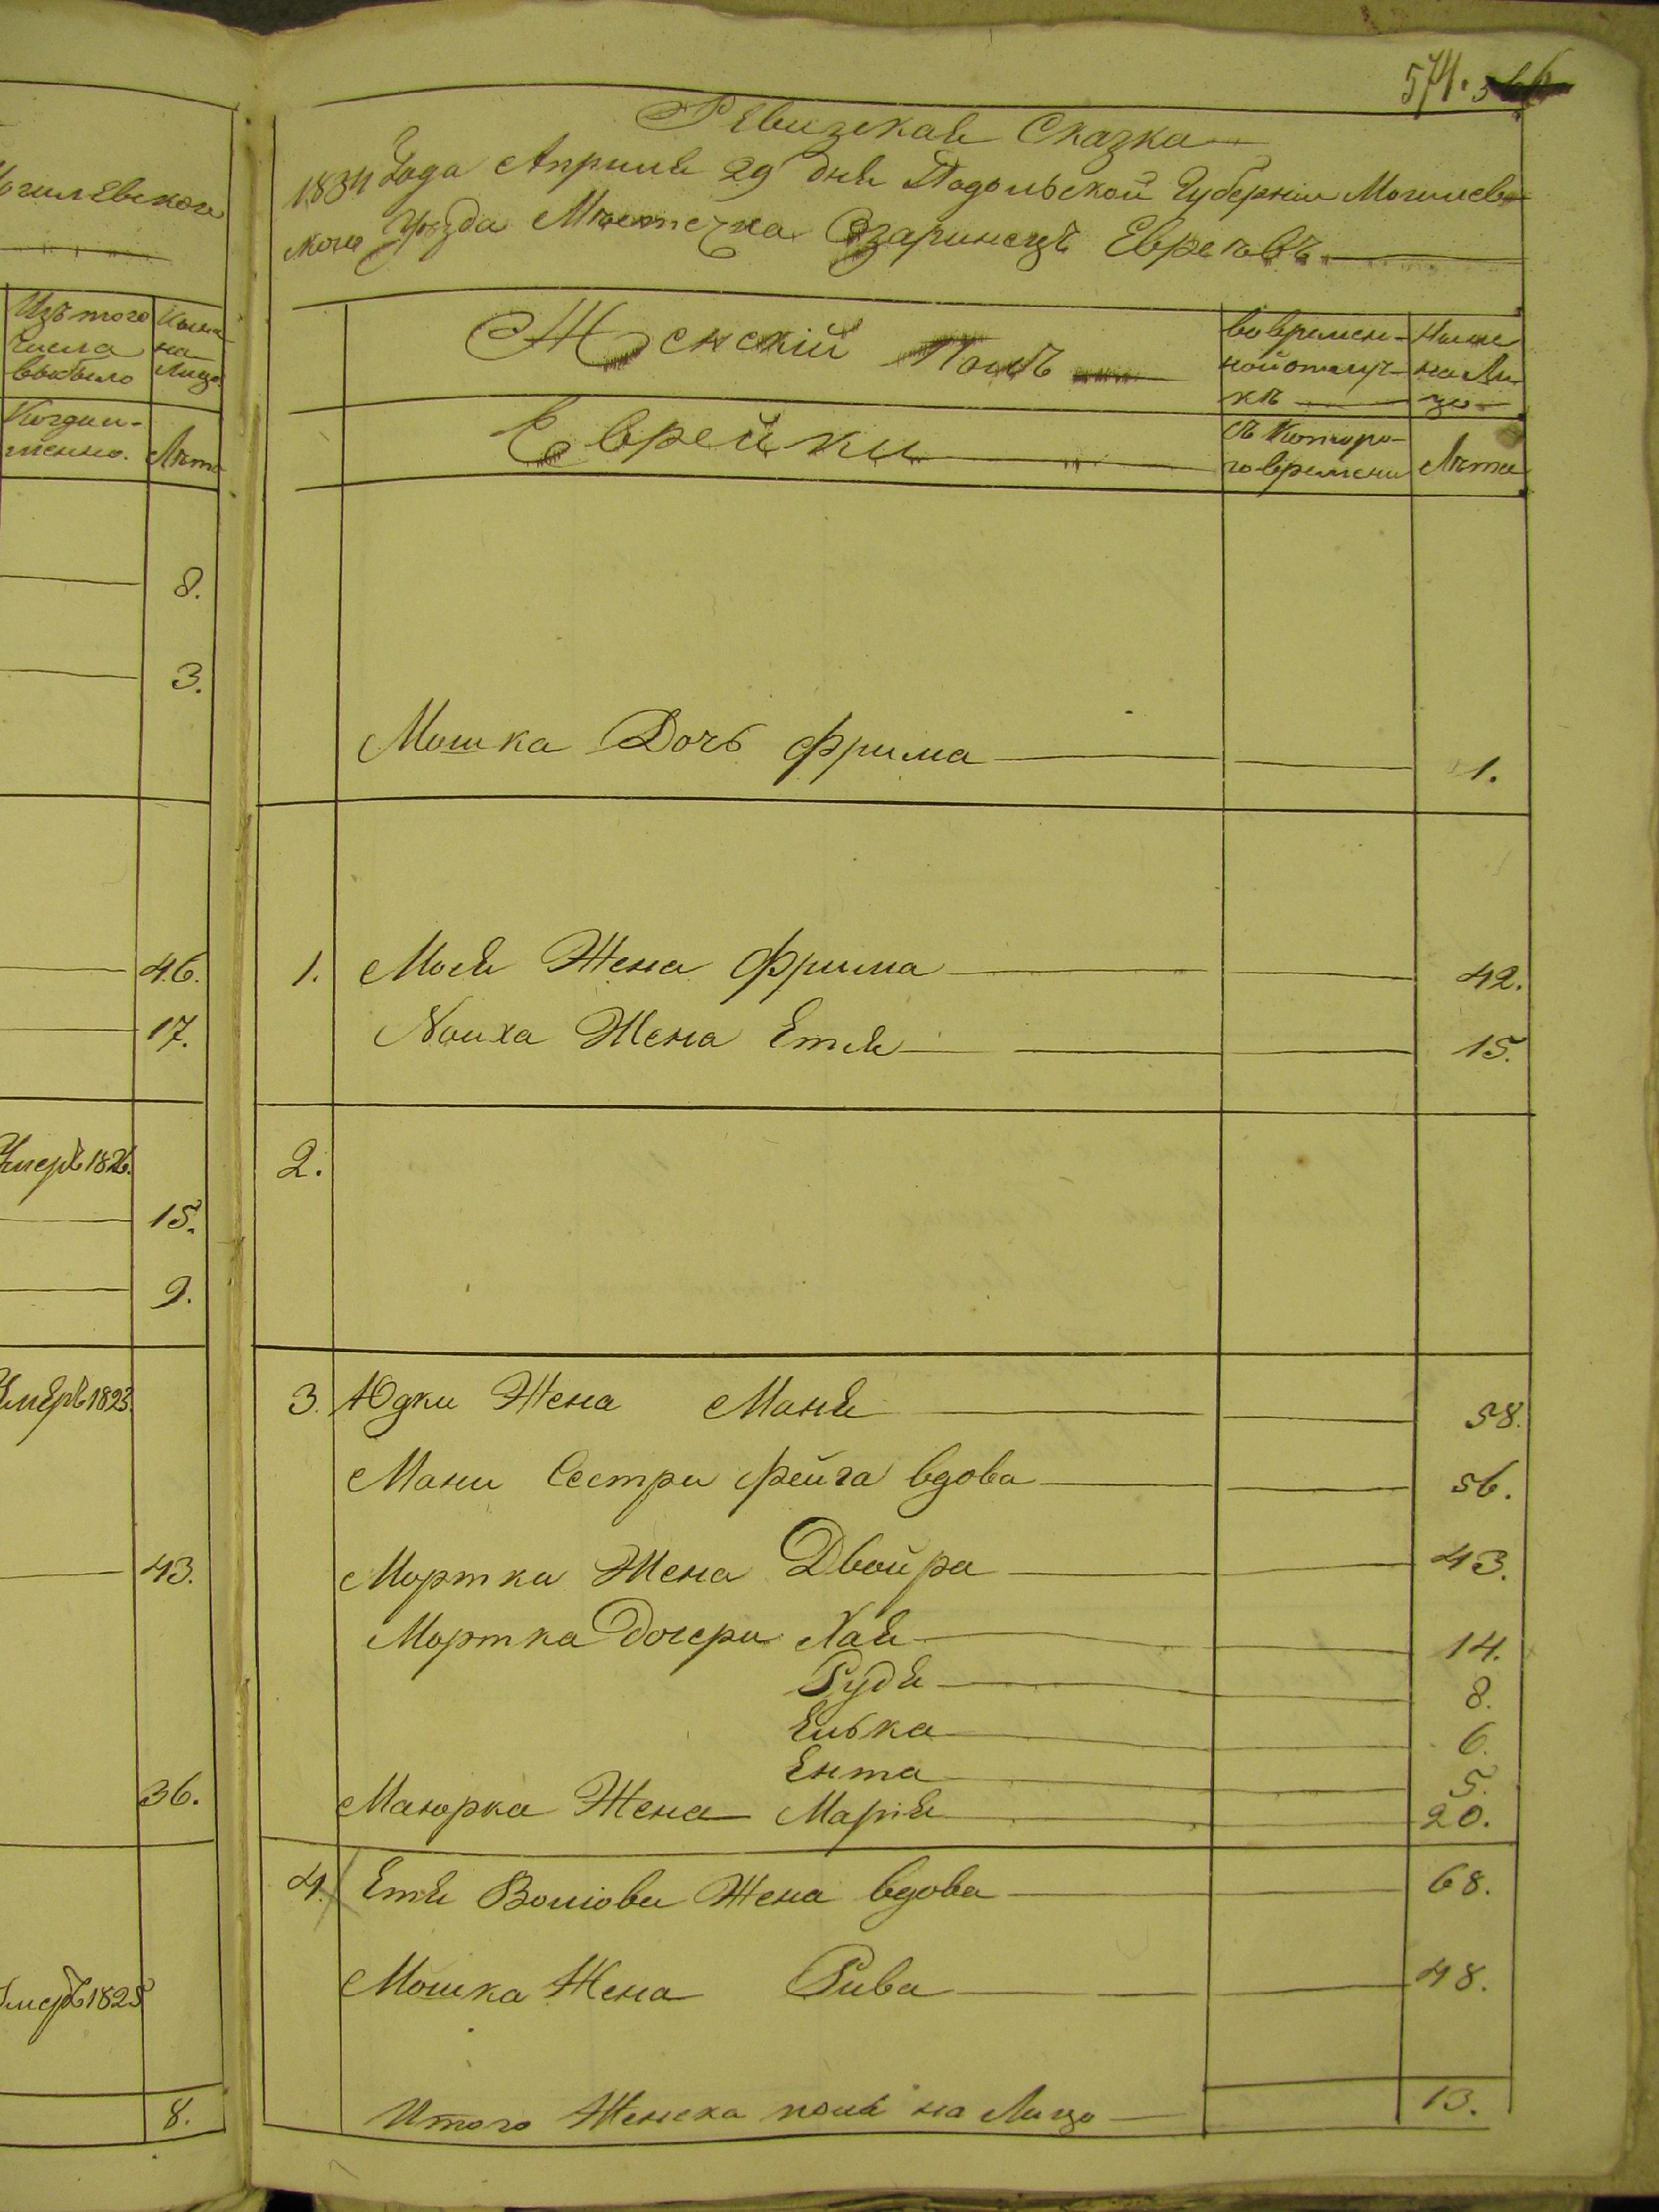 574.
Ревизская Сказка
1834 Года Апреля 29 дня Подольской Губернии Могилев-
скаго Уѣзда Мѣстечка Озаринецъ Евреевъ
Могилевского
Изъ того числа выбыло
Ныне на Лицо
Когда именно.
Лѣта
8.
3.
46.
17.
Умеръ 1826.
15.
9.
Умеръ 1823.
43.
36.
Умеръ 1825
8.
Женскій Полъ
во времен-
ной отлуч-
кѣ
Ныне
на Ли
цо
Еврейки
Съ Которо-
го времени
Лѣта
Мошка Дочь Фрима 1.
1. Моя Жена Фрима 42.
Жена Етя 15.
2.
3. Юдки Жена Маня 58.
Мани Сестра Фейга вдова 56.
Мортка Жена Двойра 43.
Мортка Дочери Хая 14.
Рудя 8.
Елька 6.
Ента 5.
Маюрка Жена Марія 20.
4. Етя Волiова Жена вдова 68.
Мошка Жена Рива 48.
Итого Женска пола на Лицо 13.